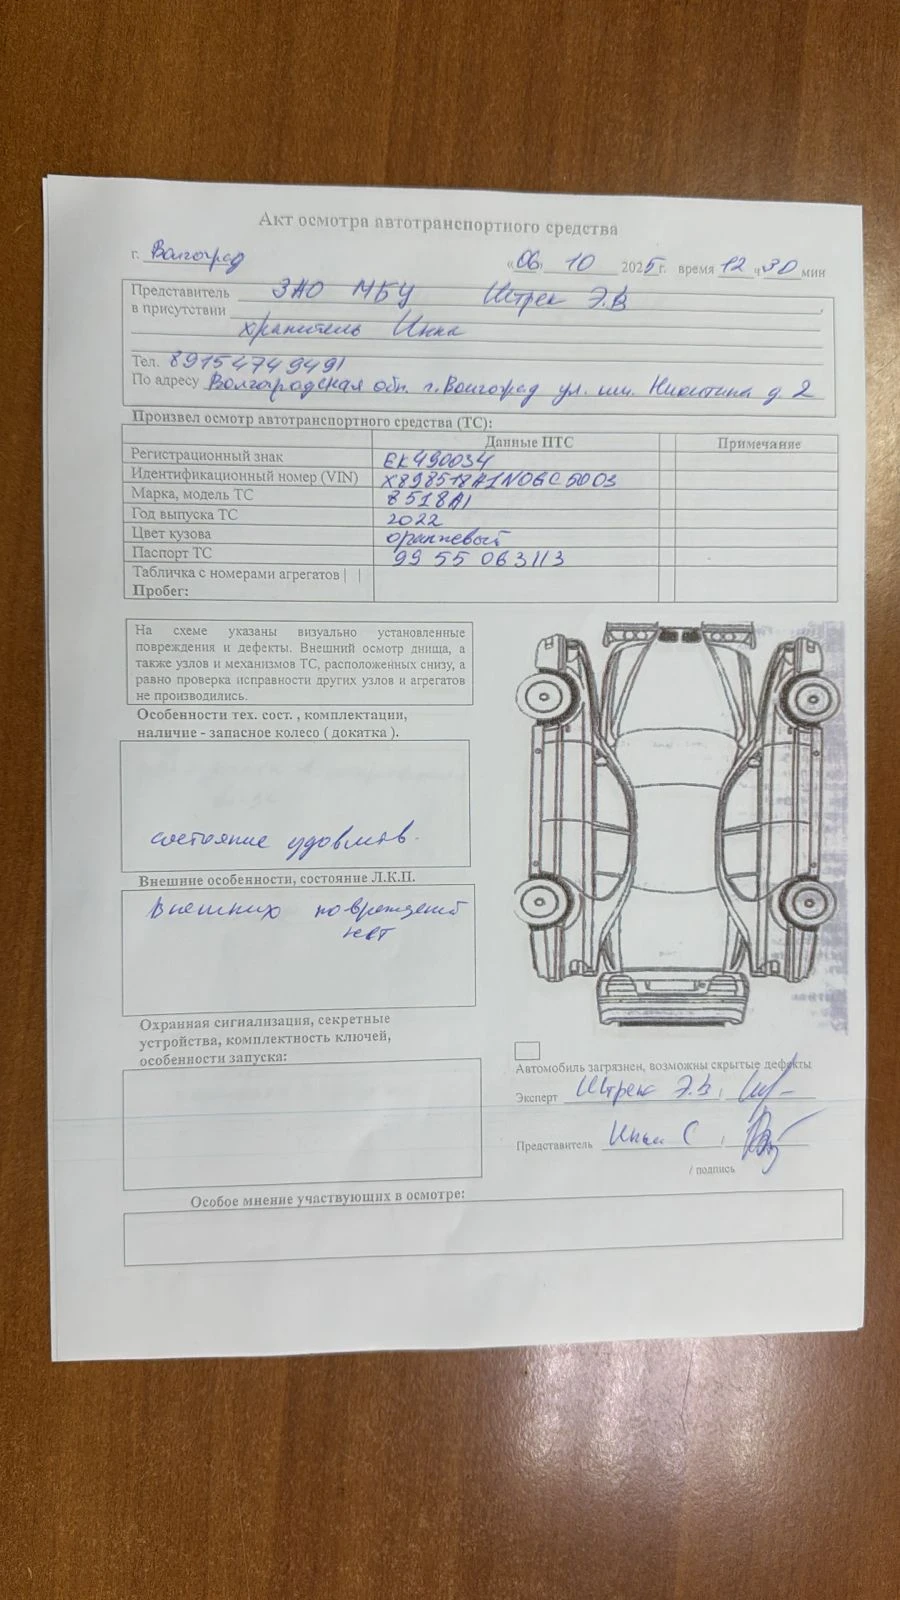 Акт осмотра автотранспортного средства
г. Волгоград «06» 10 2025 г. время 12 ч 30 мин
Представитель ЗАО МБЦ Штрек Э.В
в присутствии
хранитель Инна
Тел. 89154749491
По адресу Волгоградская обл. г. Волгоград ул. им. Никитина д. 2
Произвел осмотр автотранспортного средства (ТС):
Данные ПТС Примечание
Регистрационный знак ЕК490034
Идентификационный номер (VIN) X898518A1N0GC5003
Марка, модель ТС 8518А1
Год выпуска ТС 2022
Цвет кузова оранжевый
Паспорт ТС 99 55 063113
Табличка с номерами агрегатов | |
Пробег:
На схеме указаны визуально установленные
повреждения и дефекты. Внешний осмотр днища, а
также узлов и механизмов ТС, расположенных снизу, а
равно проверка исправности других узлов и агрегатов
не производились.
Особенности тех. сост. , комплектации,
наличие - запасное колесо ( докатка ).
состояние удовлетв.
Внешние особенности, состояние Л.К.П.
Внешних повреждений
нет
Охранная сигнализация, секретные
устройства, комплектность ключей,
особенности запуска:
Автомобиль загрязнен, возможны скрытые дефекты
Эксперт Штрек Э.В /
Представитель Инна С /
/ подпись
Особое мнение участвующих в осмотре: